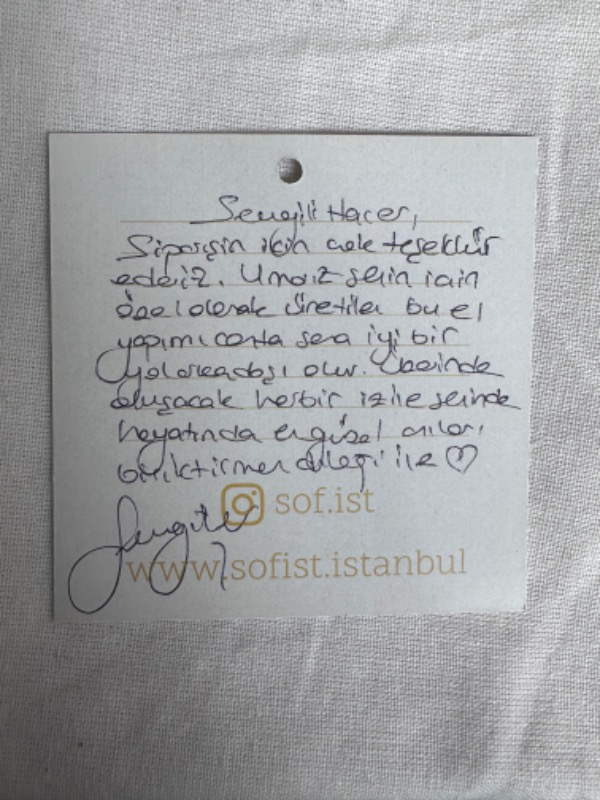 Sevgili Hacer,
Siparişin için çok teşekkür
ederiz. Umarız senin için
özel olarak üretilen bu el
yapımı çanta sana iyi bir
yol arkadaşı olur. Üzerinde
oluşacak her bir iz ile senin de
hayatında en güzel anıları
biriktirmen dileği ile ♡
sof.ist
Sevgiler
www.sofist.istanbul